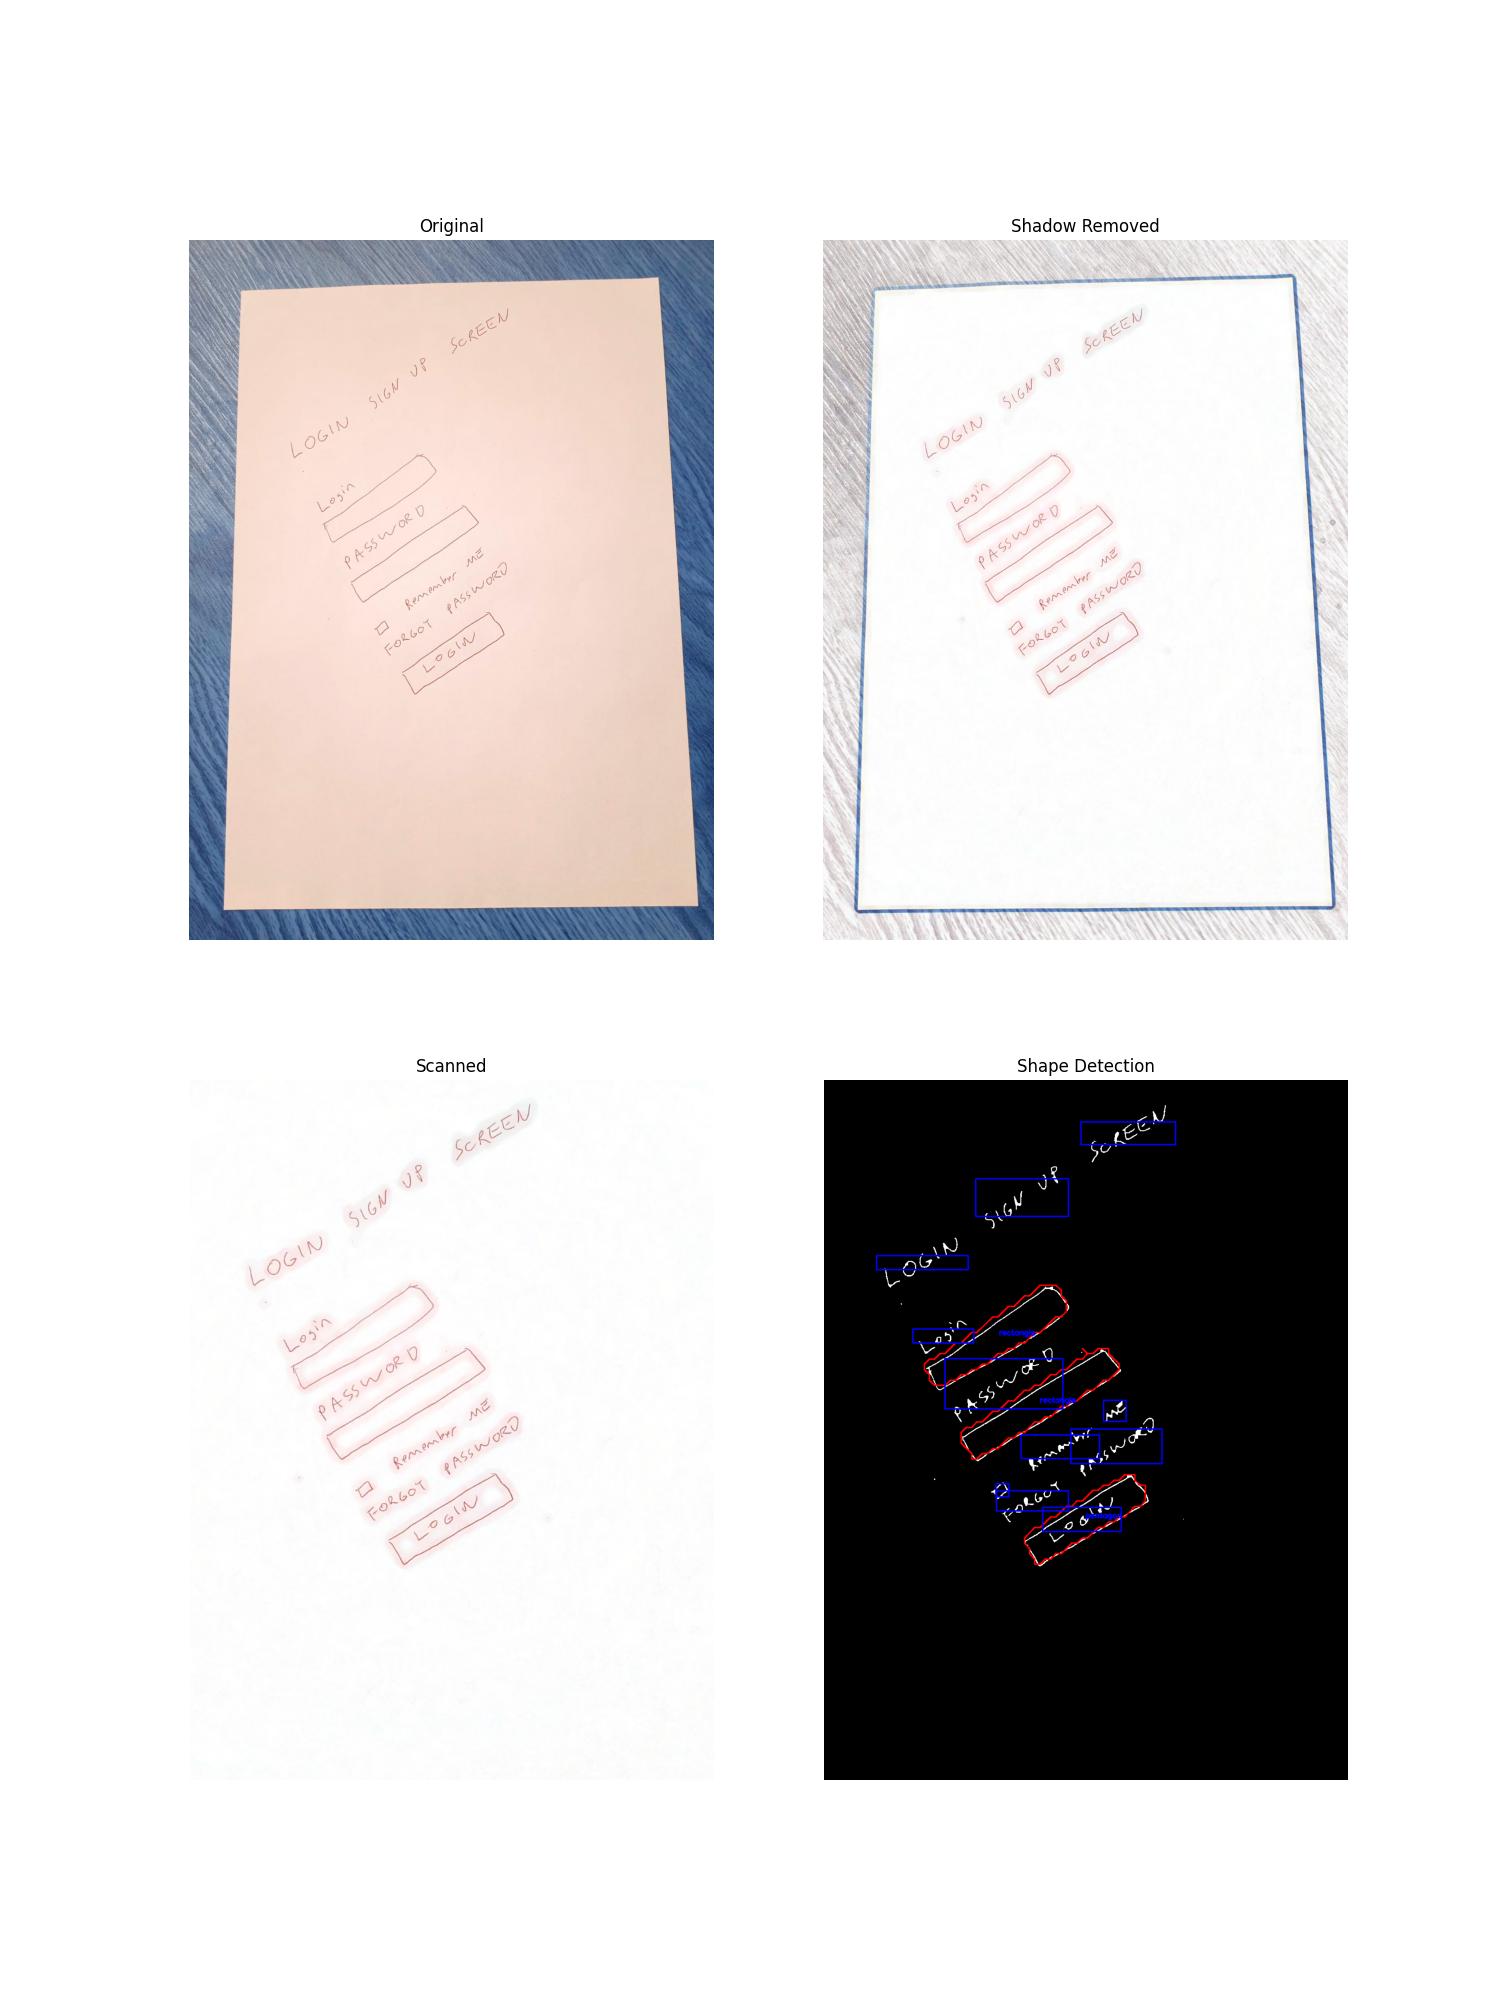 Original
LOGIN SIGN UP SCREEN
Login
PASSWORD
Remember ME
FORGOT PASSWORD
LOGIN
Shadow Removed
LOGIN SIGN UP SCREEN
Login
PASSWORD
Remember ME
FORGOT PASSWORD
LOGIN
Scanned
LOGIN SIGN UP SCREEN
Login
PASSWORD
Remember ME
FORGOT PASSWORD
LOGIN
Shape Detection
LOGIN SIGN UP SCREEN
Login
rectangle
PASSWORD
rectangle
Remember ME
FORGOT PASSWORD
LOGIN